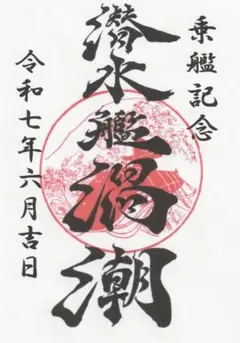 乗艦記念
潜水艦渦潮
令和七年六月吉日